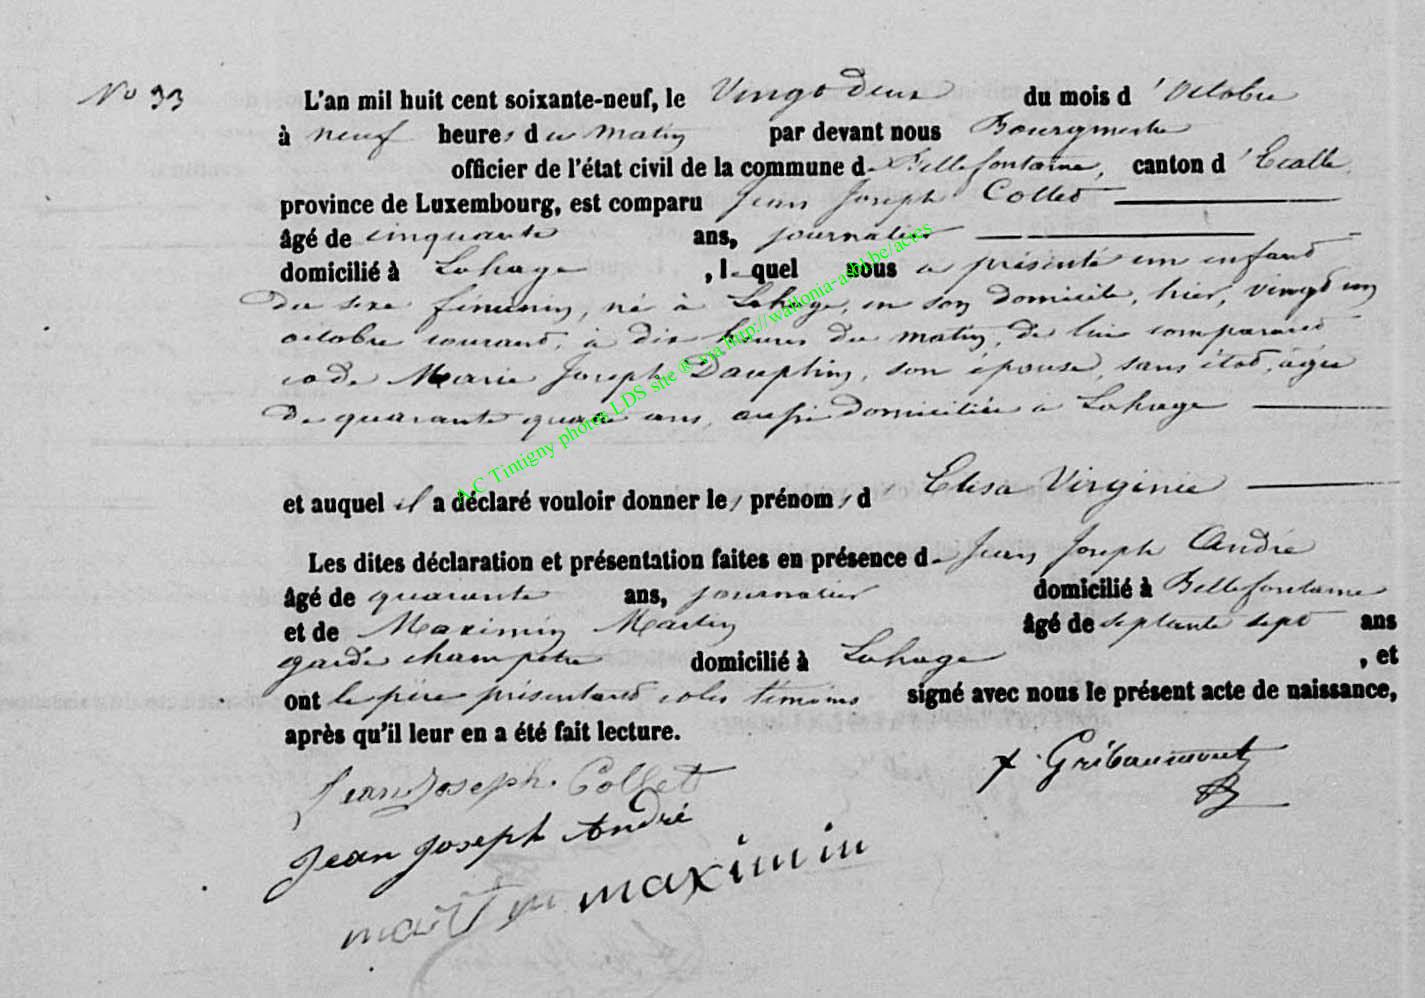 No 33
L'an mil huit cent soixante-neuf, le Vingt deux du mois d'Octobre
à neuf heures du matin par devant nous Bourgmestre
officier de l'état civil de la commune de Bellefontaine, canton d'Etalle,
province de Luxembourg, est comparu Jean Joseph Collet
âgé de cinquante ans, journalier
domicilié à Lahage, lequel nous a présenté un enfant
du sexe féminin, né à Lahage, en son domicile, hier, vingt un
octobre courant, à dix heures du matin, de lui comparant
et de Marie Joseph Dauphin, son épouse, sans état, âgée
de quarante quatre ans, aussi domiciliée à Lahage
et auquel il a déclaré vouloir donner les prénoms d Elisa Virginie
Les dites déclaration et présentation faites en présence de Jean Joseph André
âgé de quarante ans, journalier domicilié à Bellefontaine
et de Maximin Martin âgé de septante sept ans
garde champêtre domicilié à Lahage, et
ont le père présentant et les témoins signé avec nous le présent acte de naissance,
après qu'il leur en a été fait lecture.
Jean Joseph Collet Gribaumont
Jean Joseph André
martin maximin
A.C Tintigny photos LDS site ® via http://wallonia-asbl.be/actes